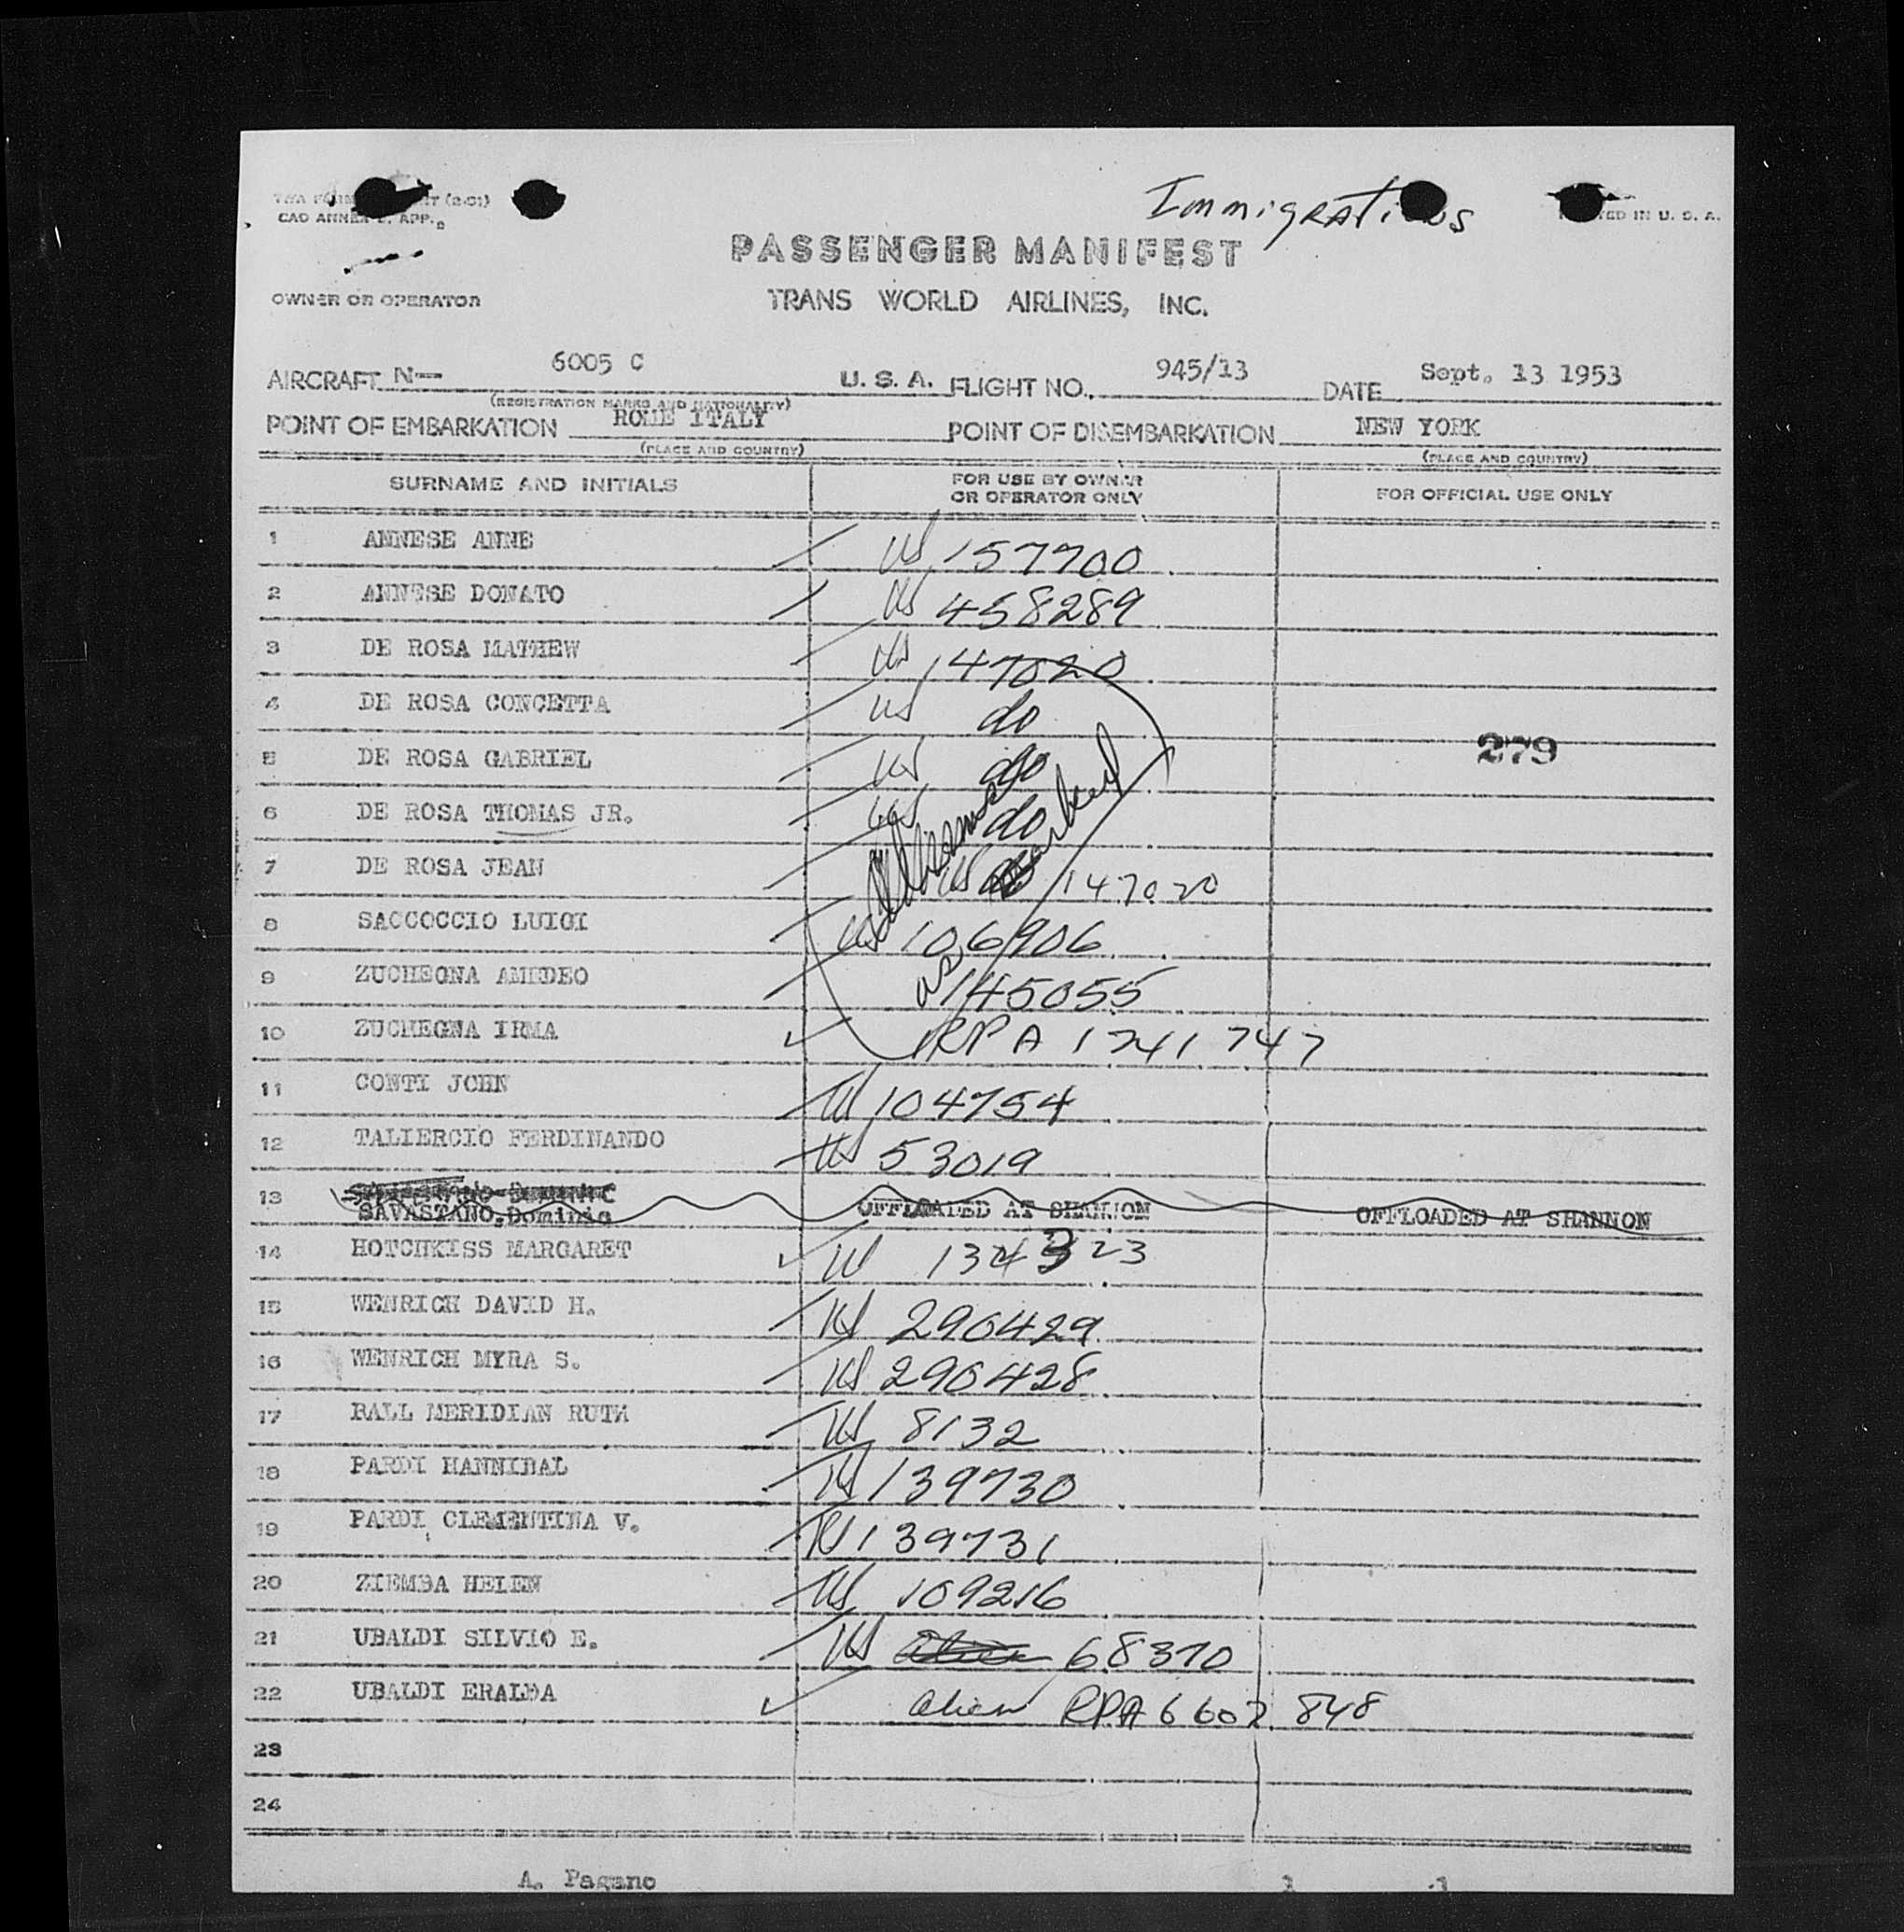 CAO ANNEX APP.
Immigrations
PRINTED IN U. S. A.
PASSENGER MANIFEST
OWNER OR OPERATOR
TRANS WORLD AIRLINES, INC.
AIRCRAFT N— 6005 C U. S. A. FLIGHT NO. 945/13 DATE Sept. 13 1953
(REGISTRATION MARKS AND NATIONALITY)
POINT OF EMBARKATION ROME ITALY POINT OF DISEMBARKATION NEW YORK
(PLACE AND COUNTRY) (PLACE AND COUNTRY)
SURNAME AND INITIALS FOR USE BY OWNER OR OPERATOR ONLY FOR OFFICIAL USE ONLY
1 ANNESE ANNE US 157700
2 ANNESE DONATO US 458289
3 DE ROSA MATHEW US 147020
4 DE ROSA CONCETTA US do
279
5 DE ROSA GABRIEL US do
6 DE ROSA THOMAS JR. US do
7 DE ROSA JEAN US 147020
8 SACCOCCIO LUIGI US 106906
9 ZUCHEGNA AMEDEO US 145055
10 ZUCHEGNA IRMA RP A 1241 747
11 CONTI JOHN US 104754
12 TALIERCIO FERDINANDO US 53019
13 SAVASTANO DOMINIC
SAVASTANO.Dominic OFFLOADED AT SHANNON OFFLOADED AT SHANNON
14 HOTCHKISS MARGARET US 134323
15 WENRICH DAVID H. US 290429
16 WENRICH MYRA S. US 290428
17 BALL MERIDIAN RUTH US 8132
18 PARDI HANNIBAL US 139730
19 PARDI CLEMENTINA V. US 139731
20 ZIEMBA HELEN US 109216
21 UBALDI SILVIO E. US alien 68370
22 UBALDI ERALDA alien RPA 6607 848
23
24
A. Pagano 1 1